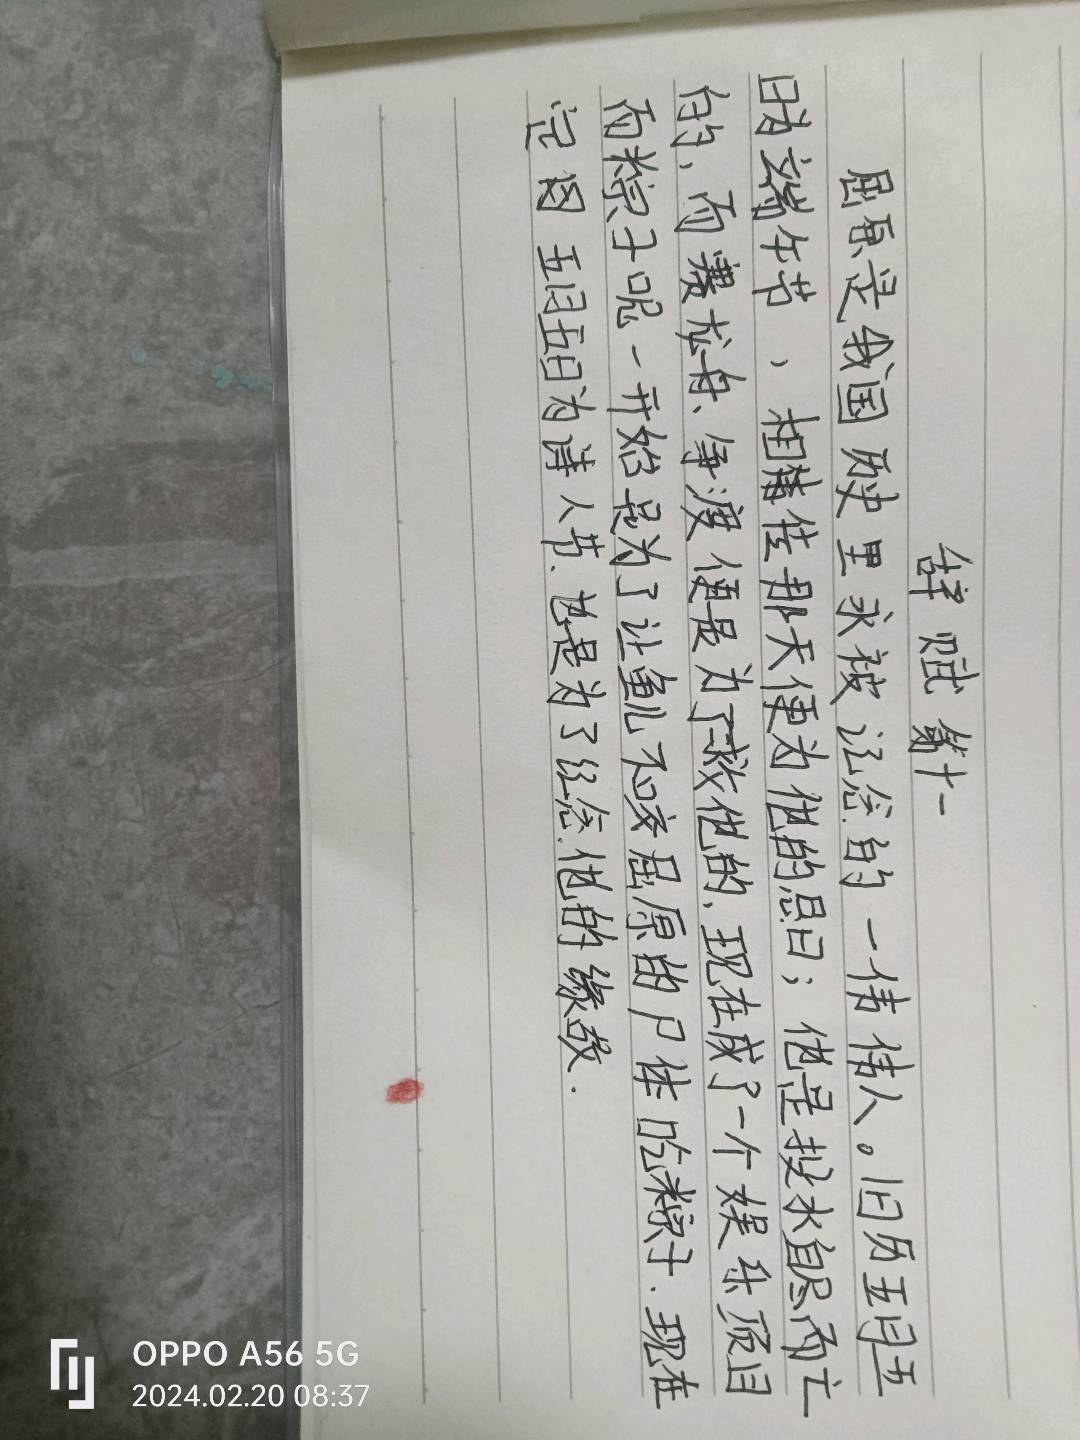 辞赋第十一
屈原是我国历史里永被记念的一伟伟人。旧历五月五
日为端午节，相传那天便为他的忌日；他是投水自尽而亡
的，而赛龙舟、争渡便是为了救他的，现在成了一个娱乐项目
而粽子呢一开始是为了让鱼儿不咬屈原的尸体吃粽子.现在
定因五月五日为诗人节.也是为了纪念他的缘故.
OPPO A56 5G
2024.02.20 08:37